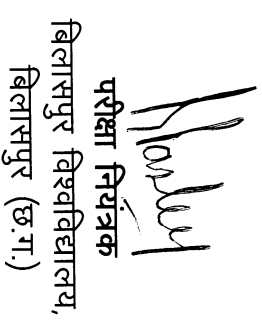 परीक्षा नियंत्रक
बिलासपुर विश्वविद्यालय,
बिलासपुर (छ.ग.)